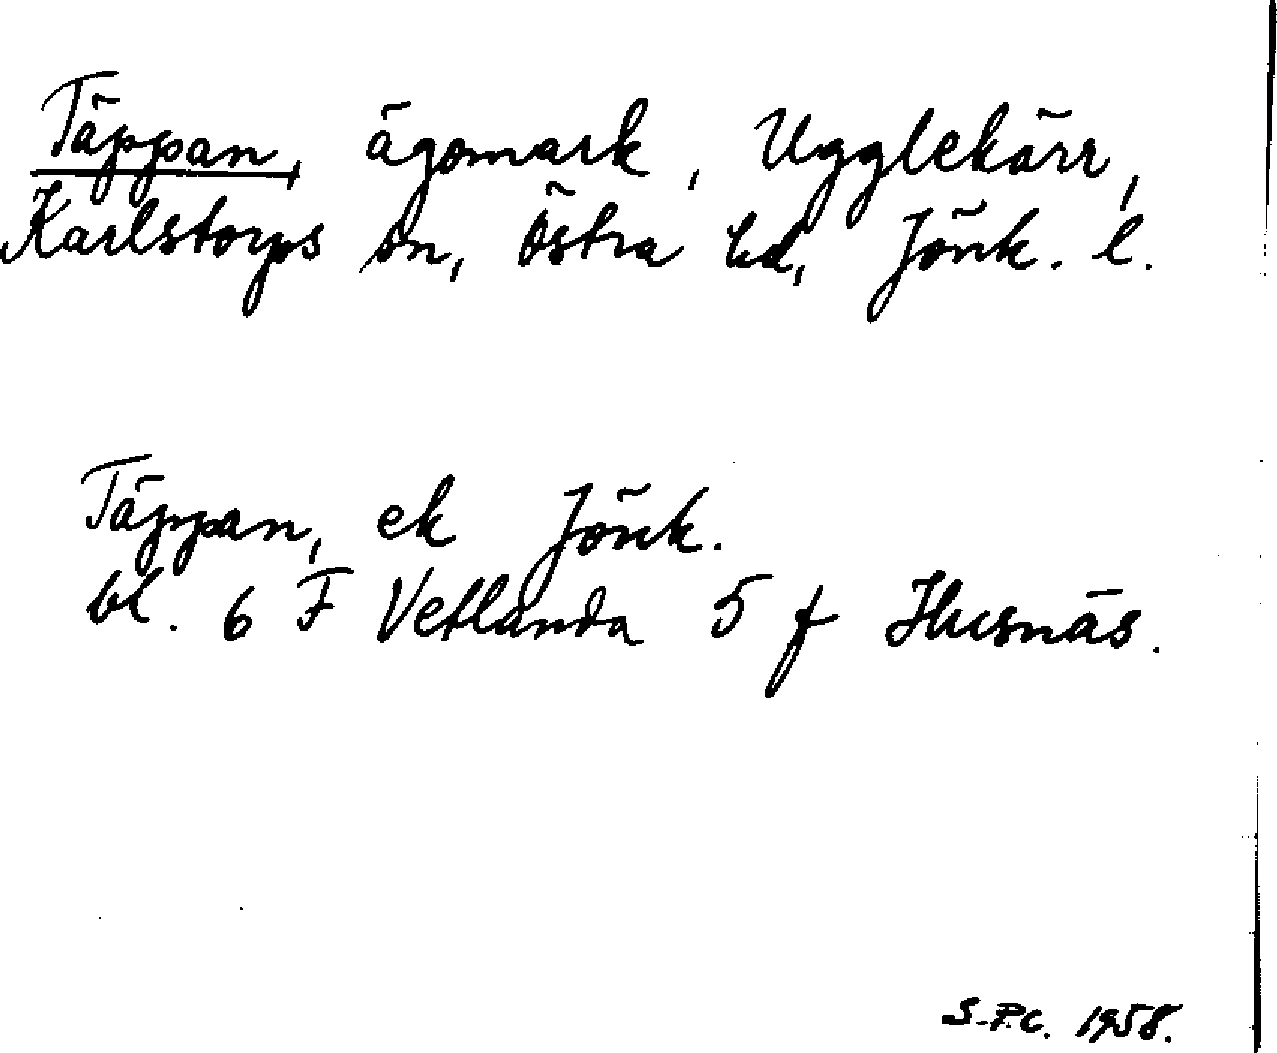 Täppan, ägomark, Ugglekärr,
Karlstorps sn, Östra hd, Jönk. l.
Täppan, ek Jönk.
bl. 6 F Vetlanda 5 f Husnäs.
S-P.C. 1958.